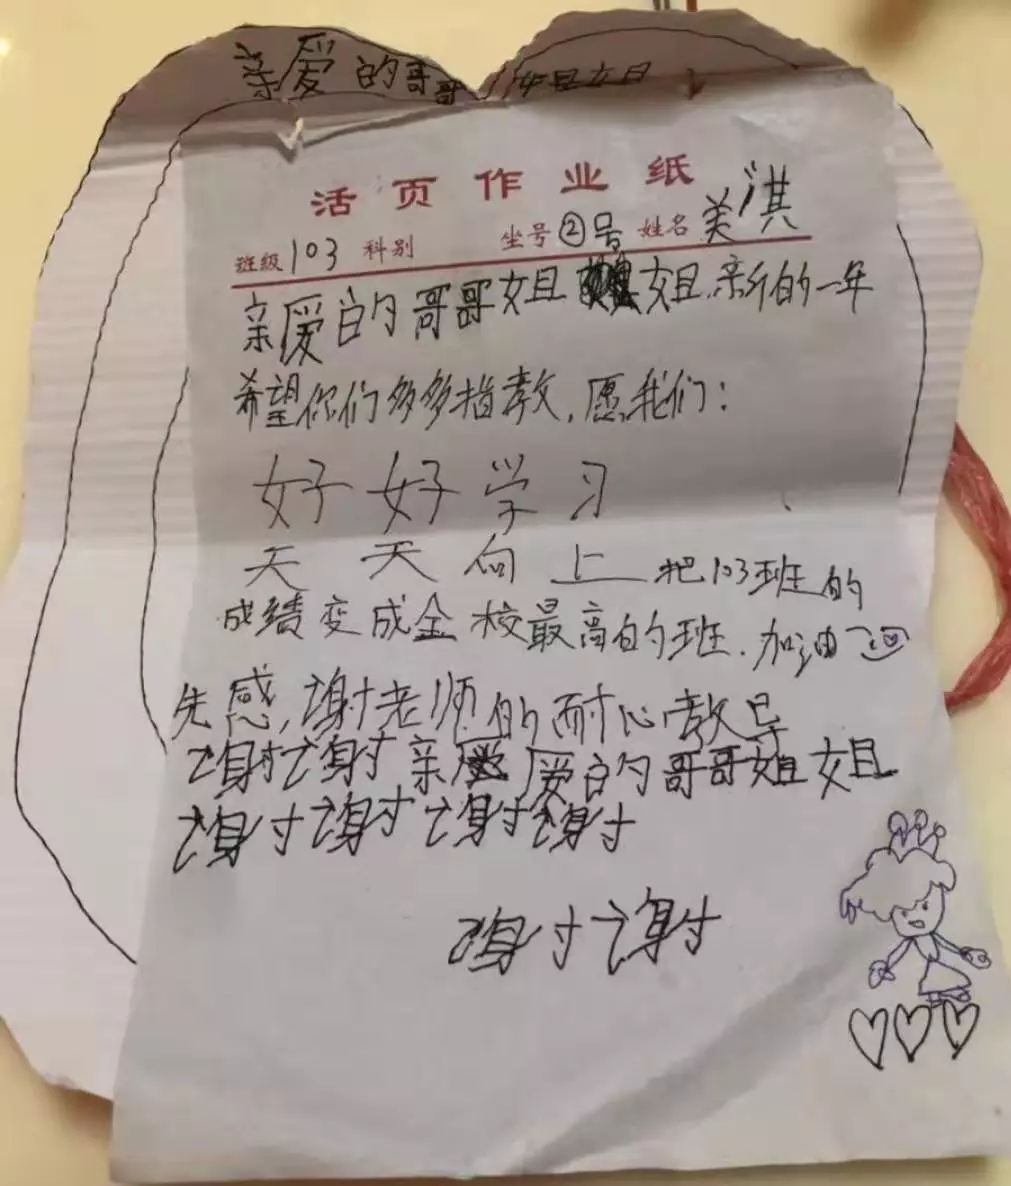 亲爱的哥哥姐姐
活页作业纸
班级103 科别 坐号②号 姓名 美淇
亲爱的哥哥姐姐,新的一年
希望你们多多指教,愿我们:
好好学习
天天向上 把103班的
成绩变成全校最高的班.加油
先感,谢老师的耐心教导
谢谢亲爱的哥哥姐姐
谢谢谢谢
谢谢